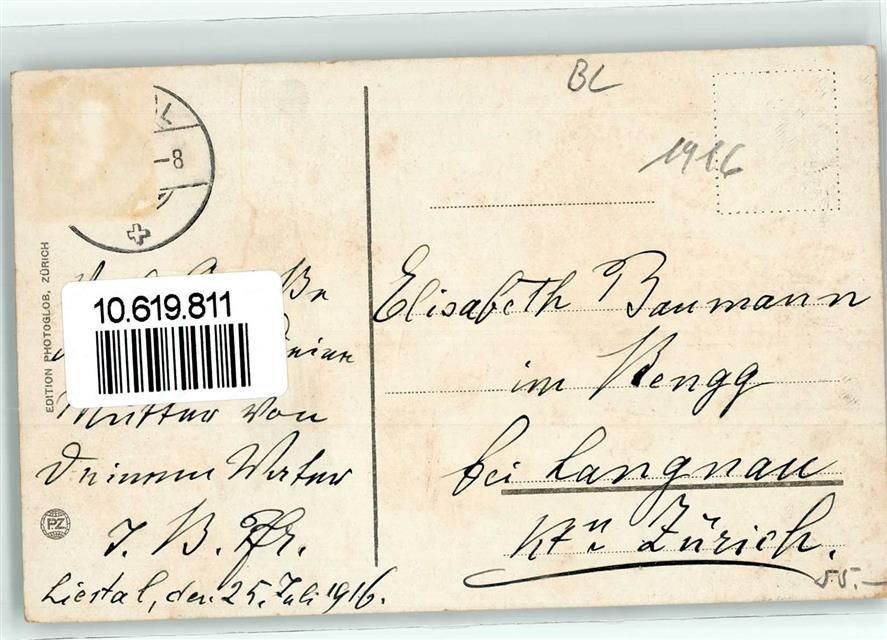 BL
1916
-8
EDITION PHOTOGLOB, ZÜRICH
10.619.811
Mutter von
Deinem Vater
J. B. Pfr.
Liestal, den 25. Juli 1916.
PZ
Elisabeth Baumann
im Rengg
bei Langnau
Ktn. Zürich.
55.-